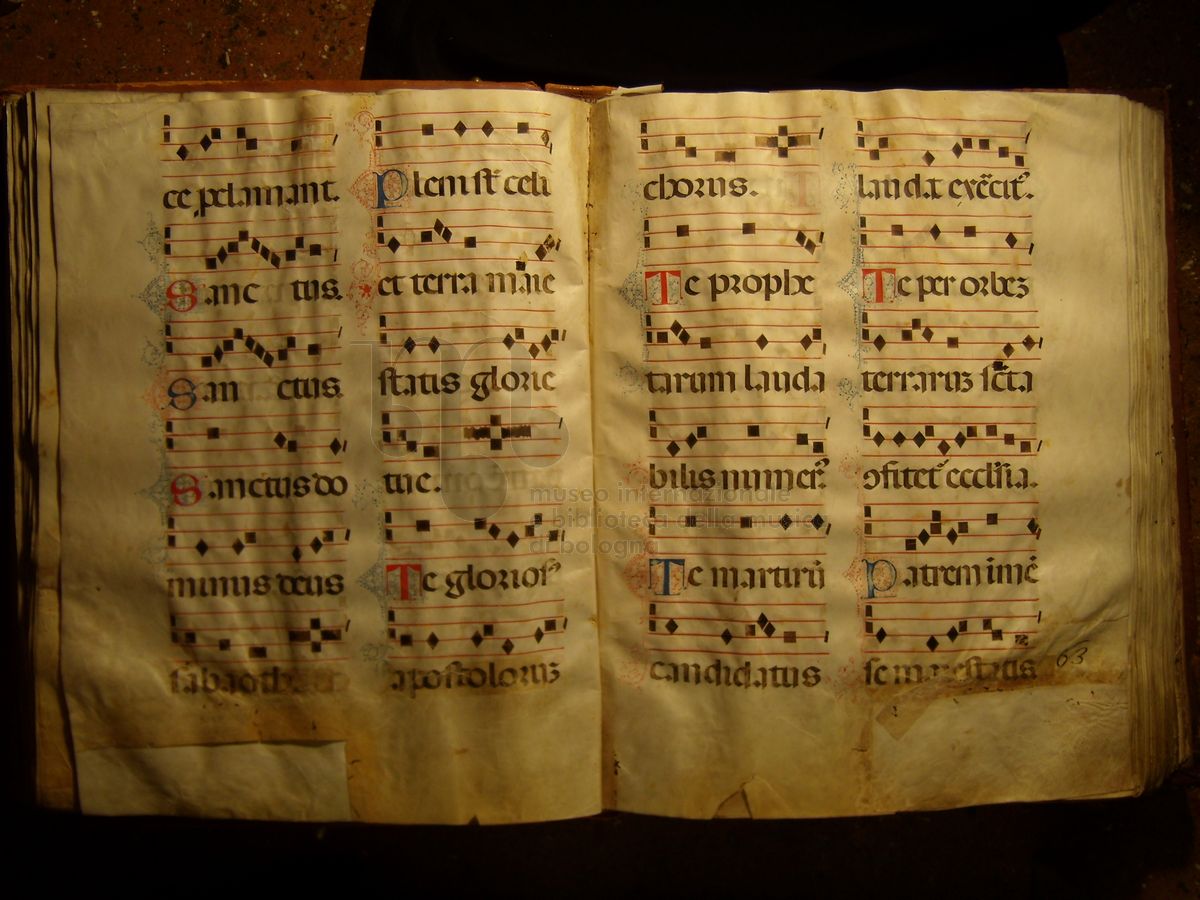 ce p̱clamant.
Sanc tus.
San ctus.
Sanctus do
minus deus
sabaoth.
Pleni sūt celi
et terra maie
statis glorie
tue.
Te gloriosꝰ
apostoloruꝫ
chorus.
Te prophe
tarum lauda
bilis numerꝰ
Te martirū
candidatus
laudat exercitꝰ.
Te per orbeꝫ
terraruꝫ scta
ↄfitetʳ ecclīa.
Patrem imē
se maiestatis
63
museo internazionale
e biblioteca della musica
di bologna